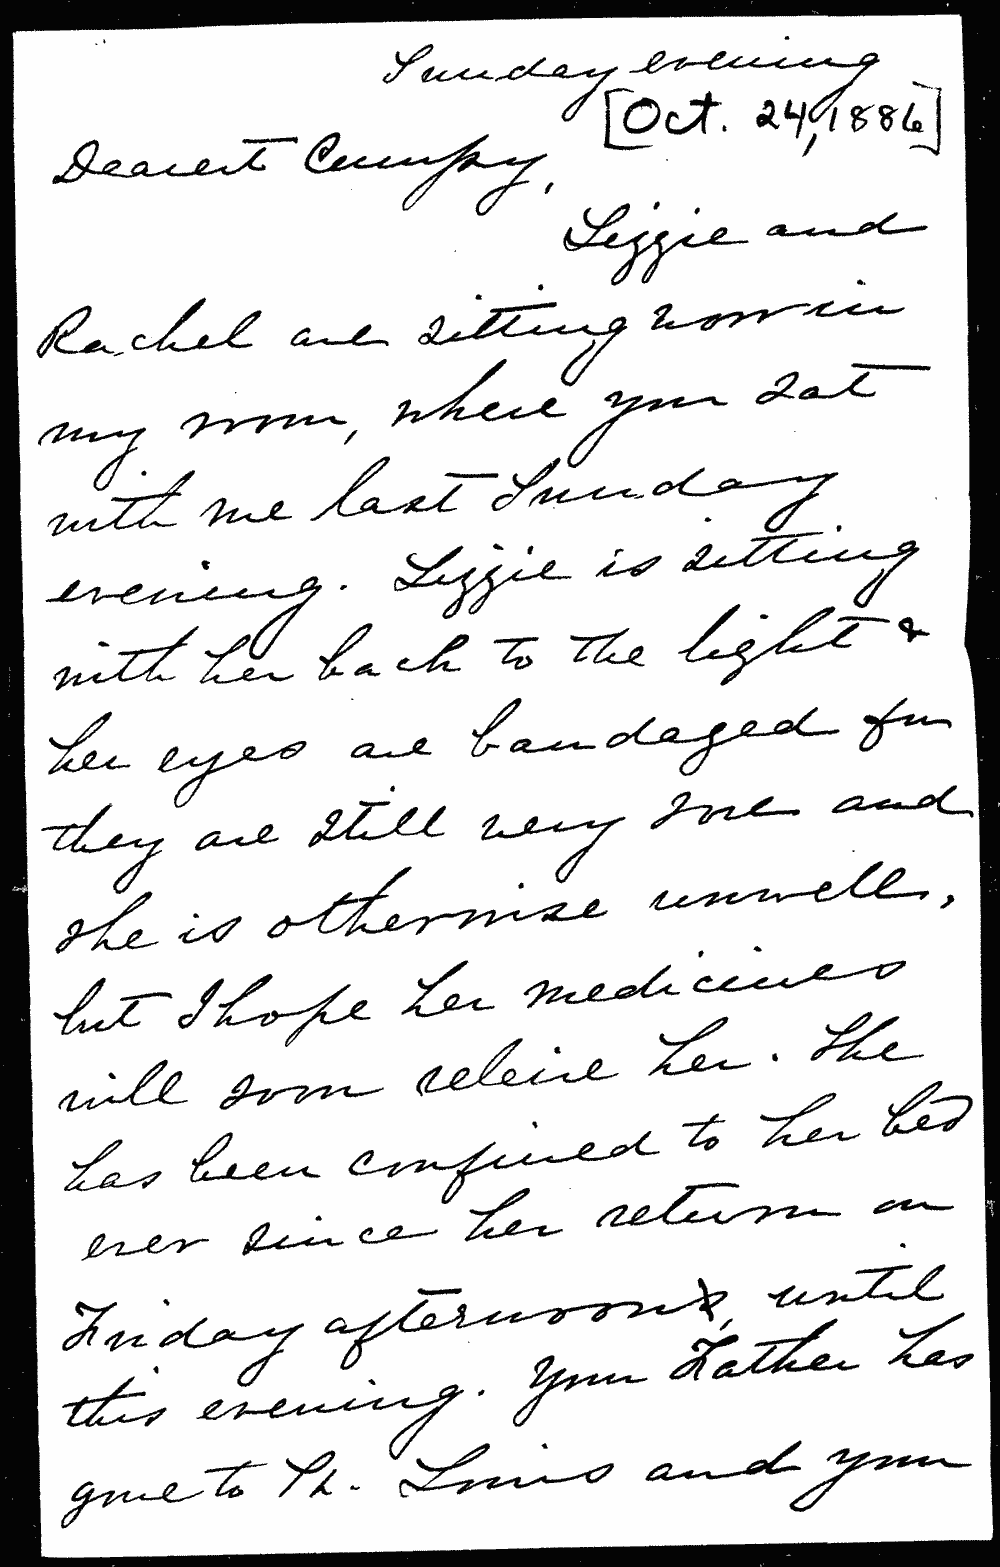 Sunday evening
[Oct. 24, 1886]
Dearest Cumpy,
Lizzie and
Rachel are sitting now in
my room, where you sat
with me last Sunday
evening. Lizzie is sitting
with her back to the light &
her eyes are bandaged for
they are still very sore and
she is otherwise unwell,
but I hope her medicines
will soon releive her. She
has been confined to her bed
ever since her return on
Friday afternoon, until
this evening. Your Father has
gone to St. Louis and your